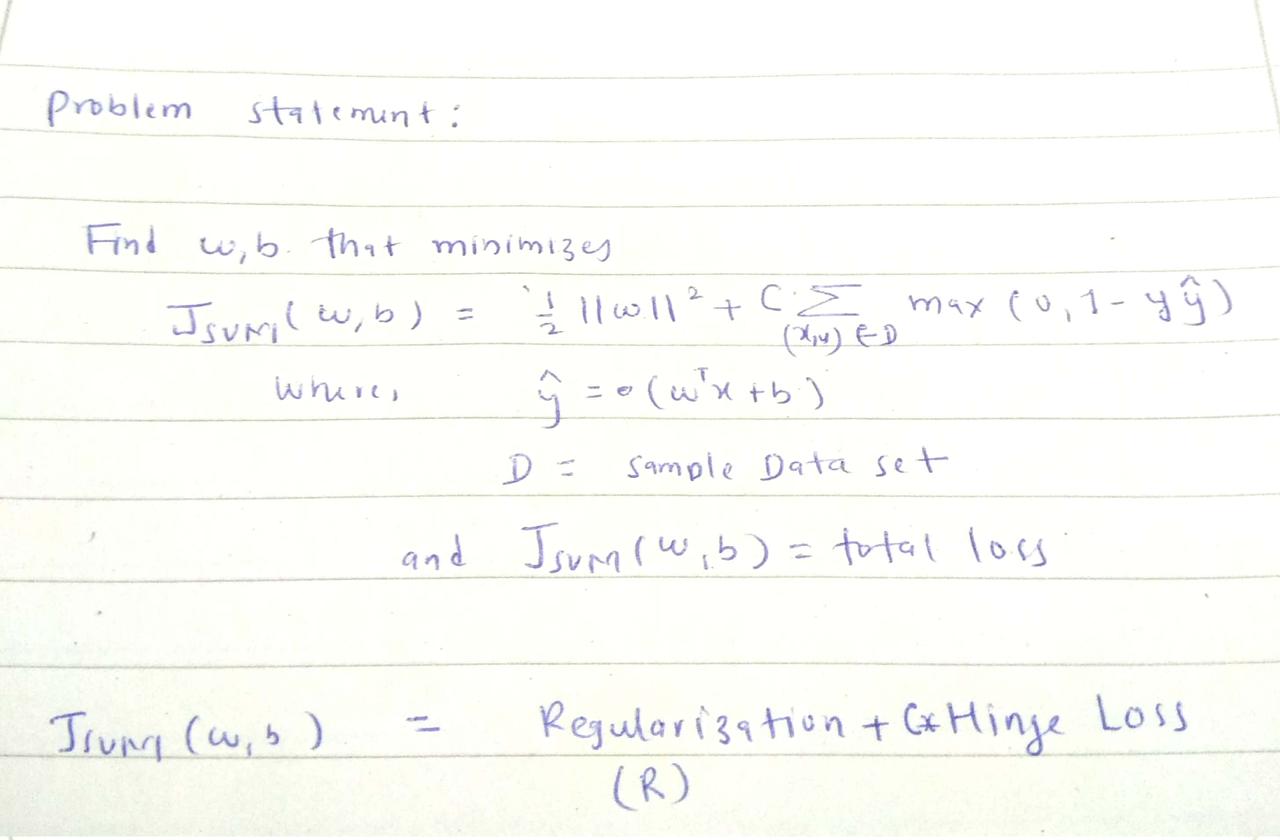 Problem statement:
Find w, b that minimizes
J_SVM(w, b) = 1/2 ||w||² + C·Σ_{(x,y) ∈ D} max(0, 1 - yŷ)
where, ŷ = σ(wᵀx + b)
D = sample Data set
and J_SVM(w, b) = total loss
J_SVM(w, b) = Regularization + C* Hinge Loss
(R)